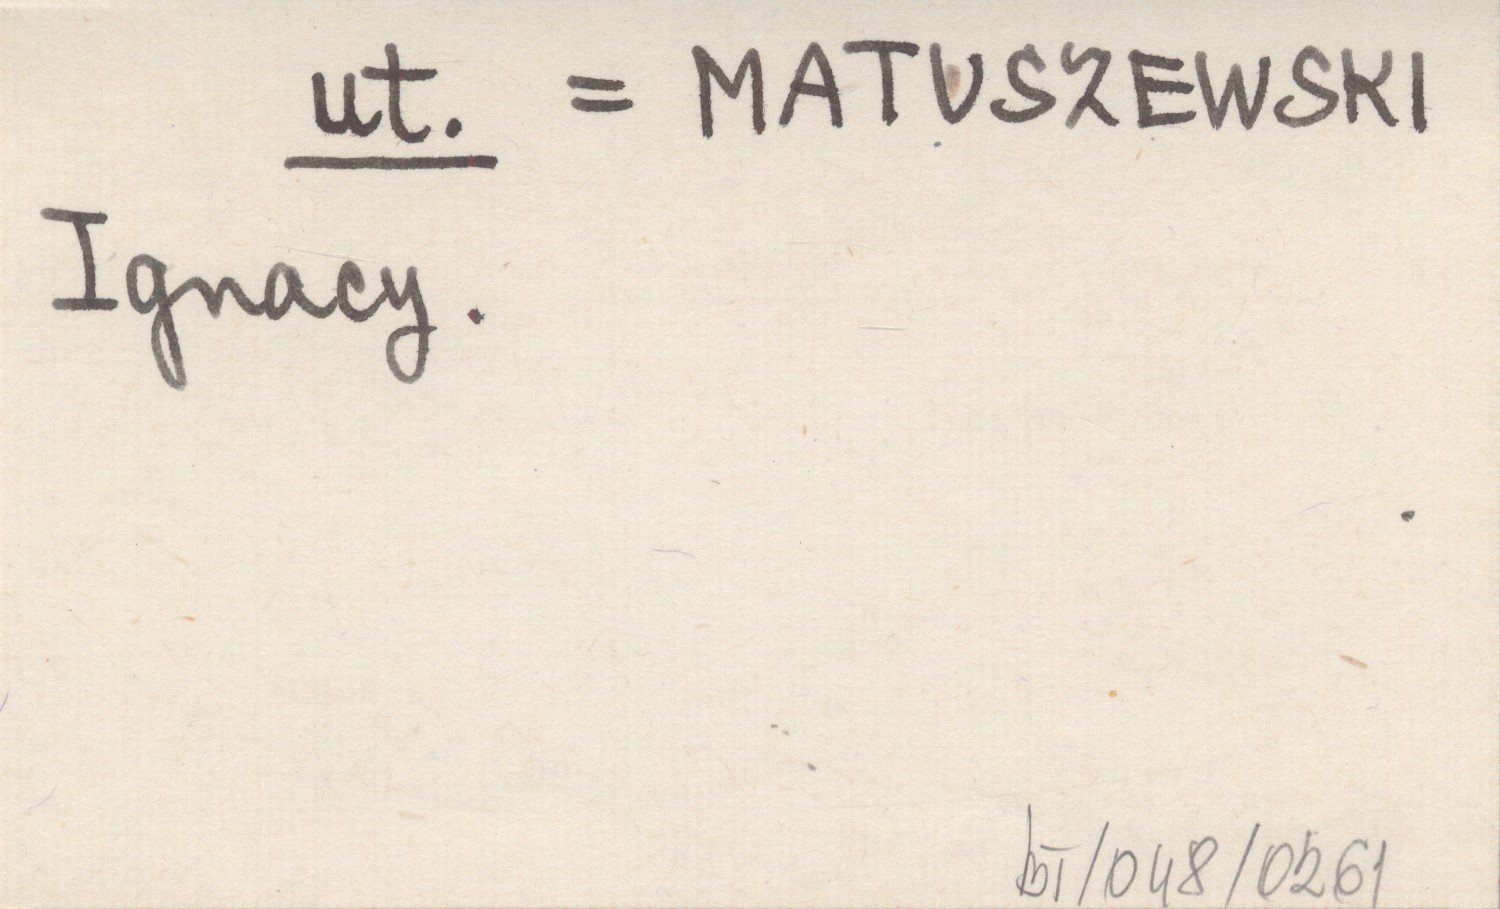 ut. = MATUSZEWSKI
Ignacy.
bI/048/0261